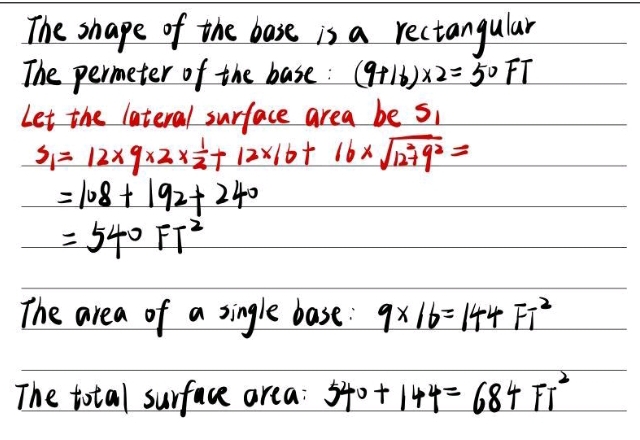 The shape of the base is a rectangular
The permeter of the base : (9+16)×2= 50 FT
Let the lateral surface area be S₁
S₁= 12×9×2×½+ 12×16+ 16×√12²+9² =
= 108 + 192+ 240
= 540 FT²
The area of a single base: 9×16=144 FT²
The total surface area: 540+144= 684 FT²